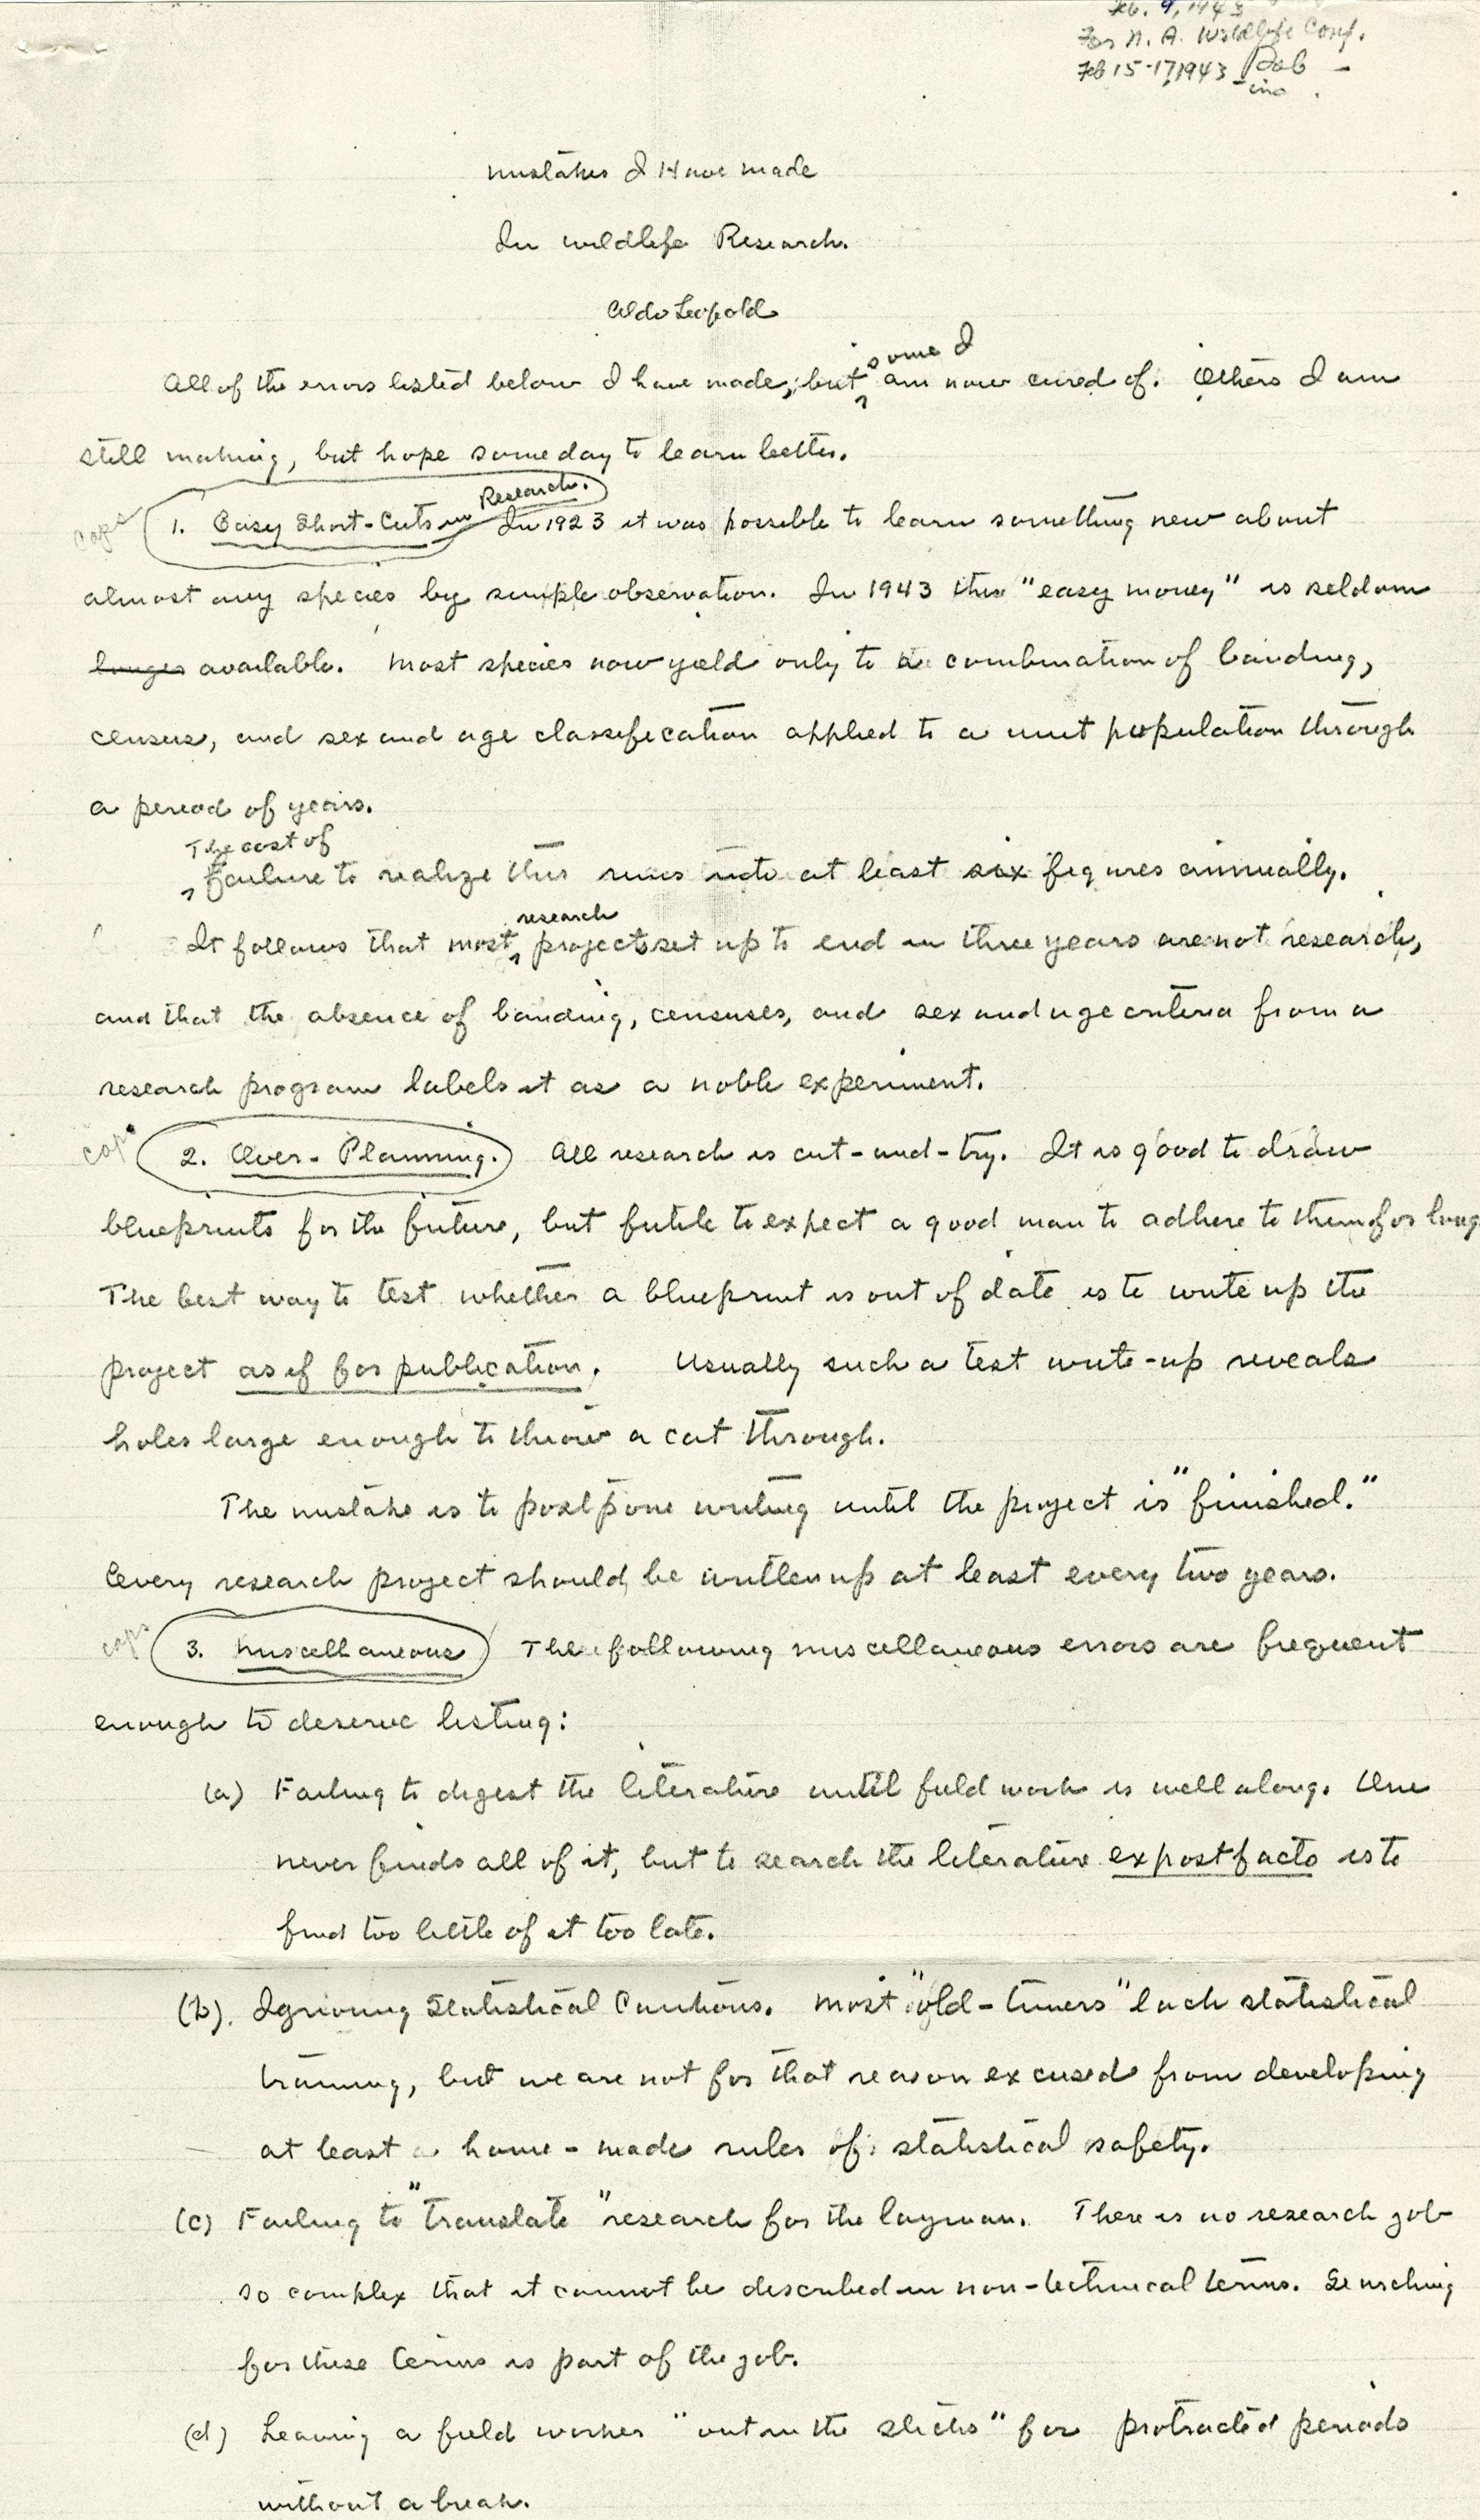 Feb. 9, 1943
For N. A. Wildlife Conf.
Feb 15-17, 1943
Mistakes I Have Made
In Wildlife Research.
Aldo Leopold
some I
All of the errors listed below I have made, but am now cured of. Others I am
still making, but hope some day to learn better.
caps 1. Easy Short-Cuts in Research. In 1923 it was possible to learn something new about
almost any species by simple observation. In 1943 this "easy money" is seldom
longer available. Most species now yield only to a combination of banding,
census, and sex and age classification applied to a unit population through
a period of years.
The cost of
Failure to realize this runs into at least six figures annually.
research
It follows that most projects set up to end in three years are not research,
and that the absence of banding, censuses, and sex and age criteria from a
research program labels it as a noble experiment.
caps 2. Over-Planning. All research is cut-and-try. It is good to draw
blueprints for the future, but futile to expect a good man to adhere to them for long
The best way to test whether a blueprint is out of date is to write up the
project as if for publication. Usually such a test write-up reveals
holes large enough to throw a cat through.
The mistake is to postpone writing until the project is "finished."
Every research project should be written up at least every two years.
caps 3. Miscellaneous The following miscellaneous errors are frequent
enough to deserve listing:
(a) Failing to digest the literature until field work is well along. One
never finds all of it, but to search the literature ex post facto is to
find too little of it too late.
(b). Ignoring Statistical Cautions. Most "old-timers" lack statistical
training, but we are not for that reason excused from developing
at least home-made rules of statistical safety.
(c) Failing to "translate" research for the layman. There is no research job
so complex that it cannot be described in non-technical terms. Searching
for these terms is part of the job.
(d) Leaving a field worker "out in the sticks" for protracted periods
without a break.